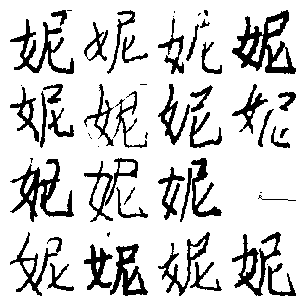 妮妮妮妮
妮妮妮妮
妮妮妮
妮妮妮妮